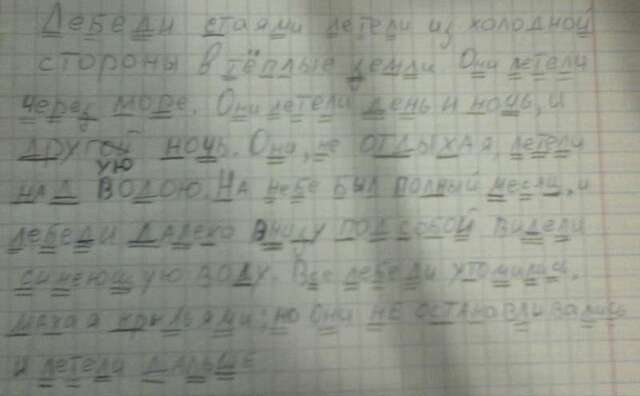 Лебеди стаями летели из холодной
стороны в тёплые земли. Они летели
через море. Они летели день и ночь, и
другую ночь. Они, не отдыхая, летели
над водою. На небе был полный месяц, и
лебеди далеко внизу под собой видели
синеющую воду. Все лебеди утомились,
махая крыльями; но они не останавливались
и летели дальше